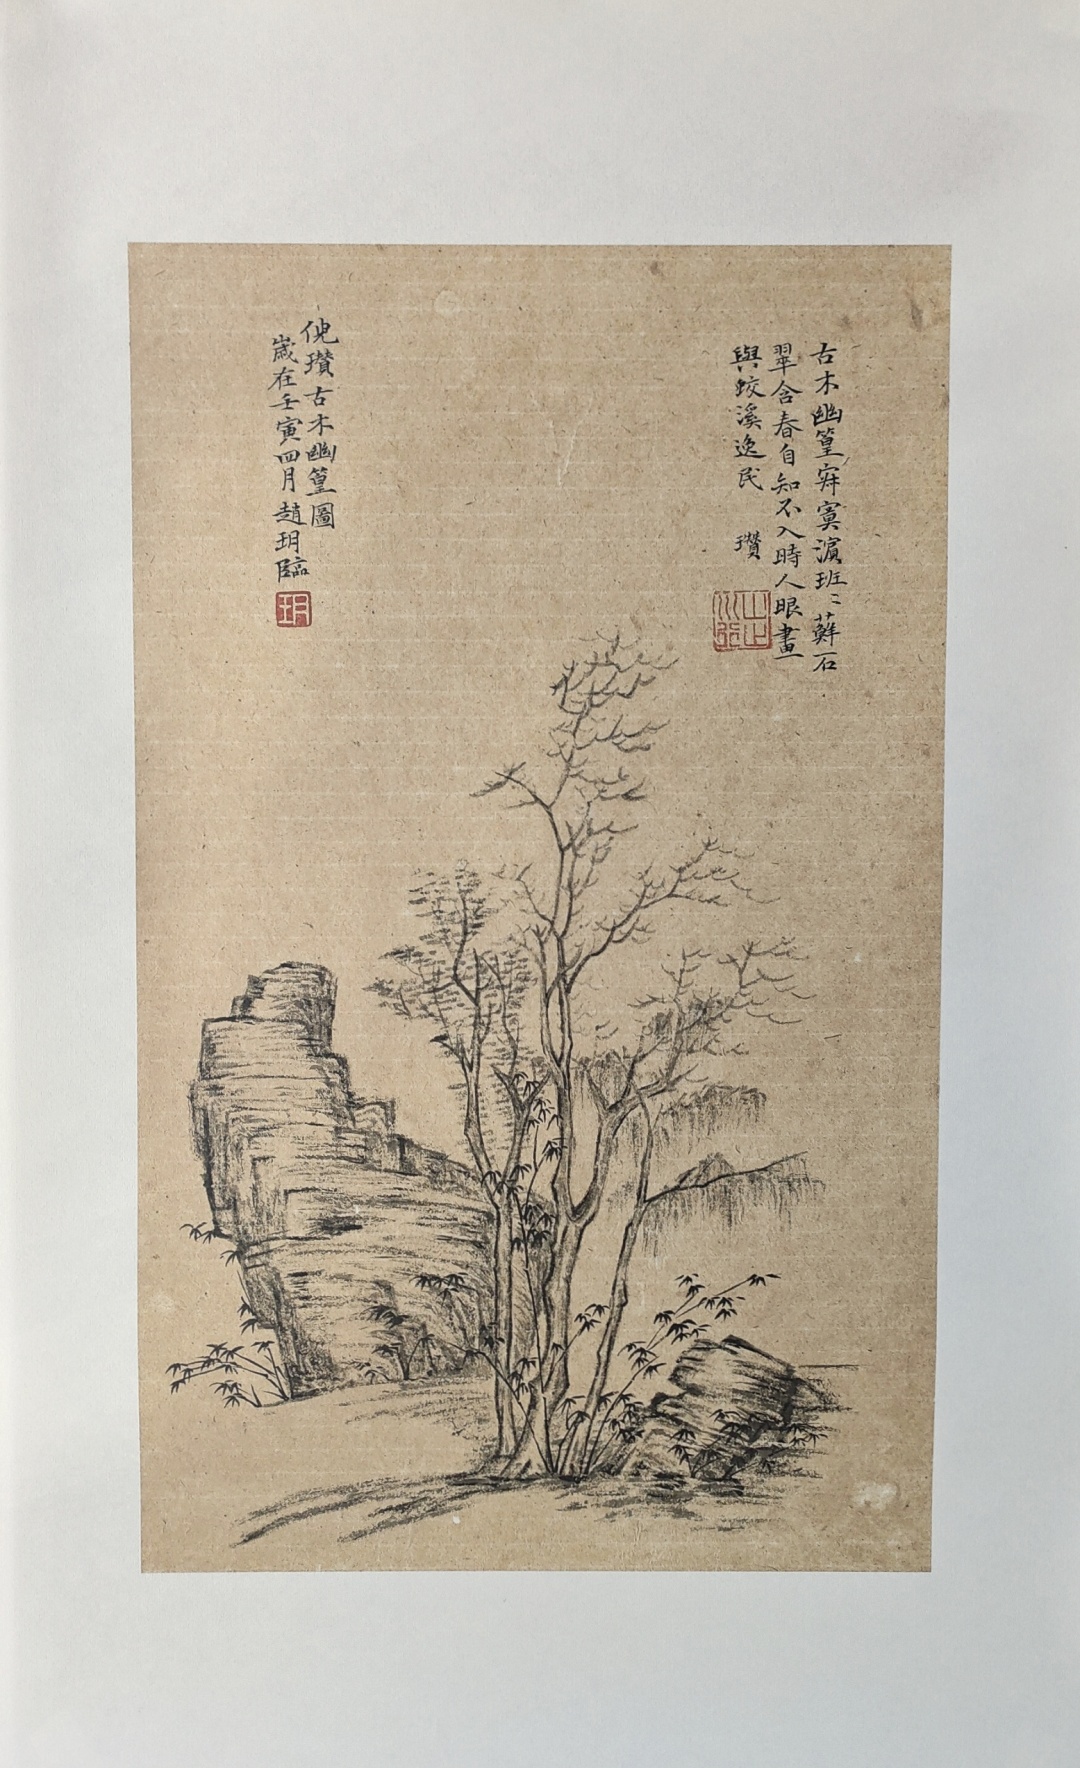 古木幽篁寂寞濵班〻蘚石
翠含春自知不入時人眼畫
與蛟溪逸民　瓚
倪瓚古木幽篁圖
歲在壬寅四月趙玥臨
玥